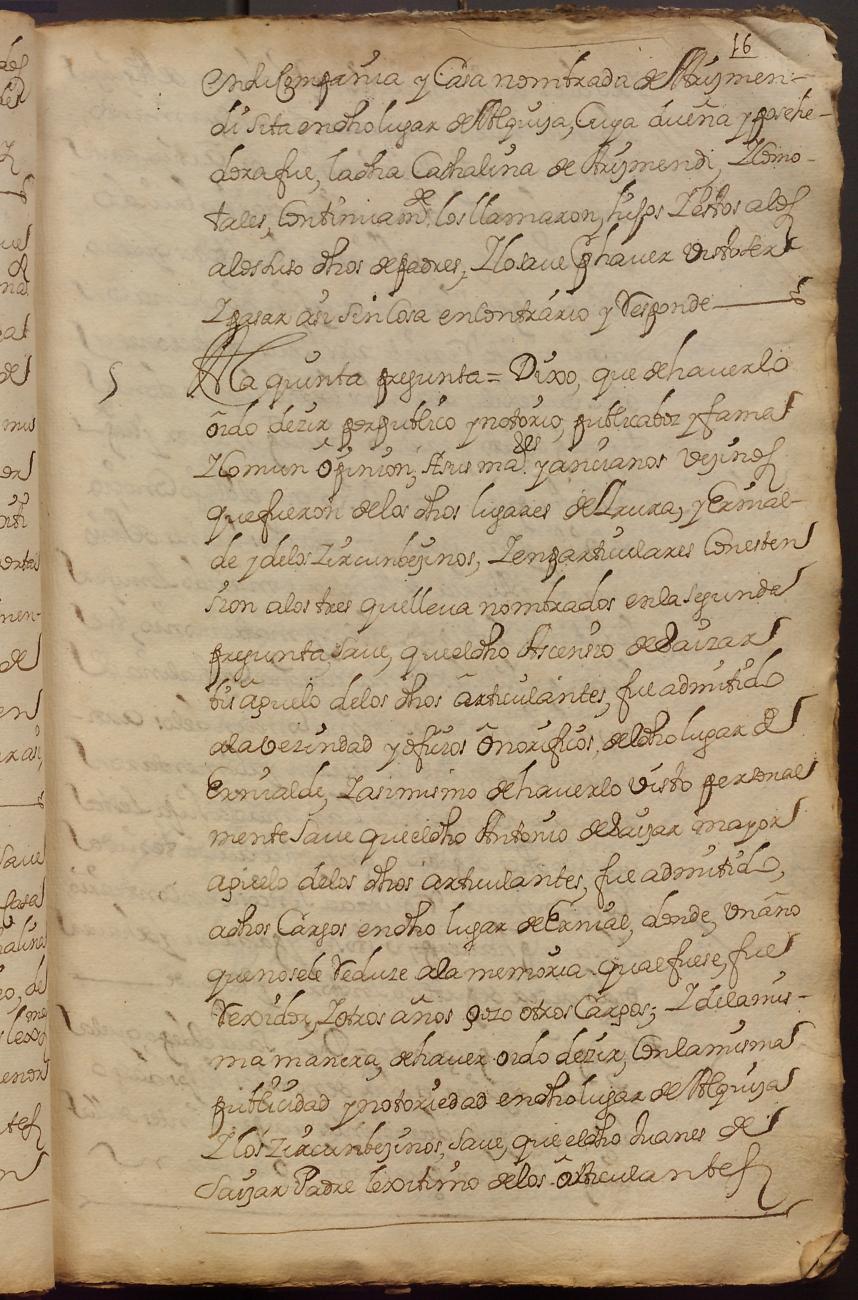 16
en su Compañia y Casa nombrada de Arijmen-
di sita en dho lugar de Alquiza, Cuya dueña y posehe-
dora fue, la dha Cathalina de Arijmendi, Y Como
tales, Continuam.te los llamaron, hijos Y estos a los
a los suso dhos de padres, Y lo save haver visto ser
Y pasar asi sin Cosa en Contrário y Responde
5 A la quinta pregunta = Dixo, que de haverlo
oido dezir por publico y notorio, publica boz y fama
Y Comun Opinion, A sus ma.res y ancianos vezinos
que fueron de los dhos lugares de Urura, y Ernial-
de y de los Zircunbezinos, Y en particulares Con esten
sion a los tres que lleva nombrados en la segunda
pregunta, save, que el dho Ascensio de Saizar
bisaguelo de los dhos articulantes, fue admitido
a la vezindad y oficios Onorificos, del dho lugar de
Ernialde, Y asimismo de haverlo visto personal
mente save que el dho Antonio de Saizar mayor
aguelo de los dhos articulantes, fue admitido,
a dhos Cargos en dho lugar de Ernial, donde, un año
que no se le Reduze a la memoria qual fuese, fue
Rexidor, Y otros años gozo otros Cargos; Y de la mis-
ma manera, de haver oido dezir, Con la misma
publicidad y notoriedad en dho lugar de Alquiza
Y los Zircunbezinos, save, que el dho Juanes de
Saizar Padre lexitimo de los articulantes